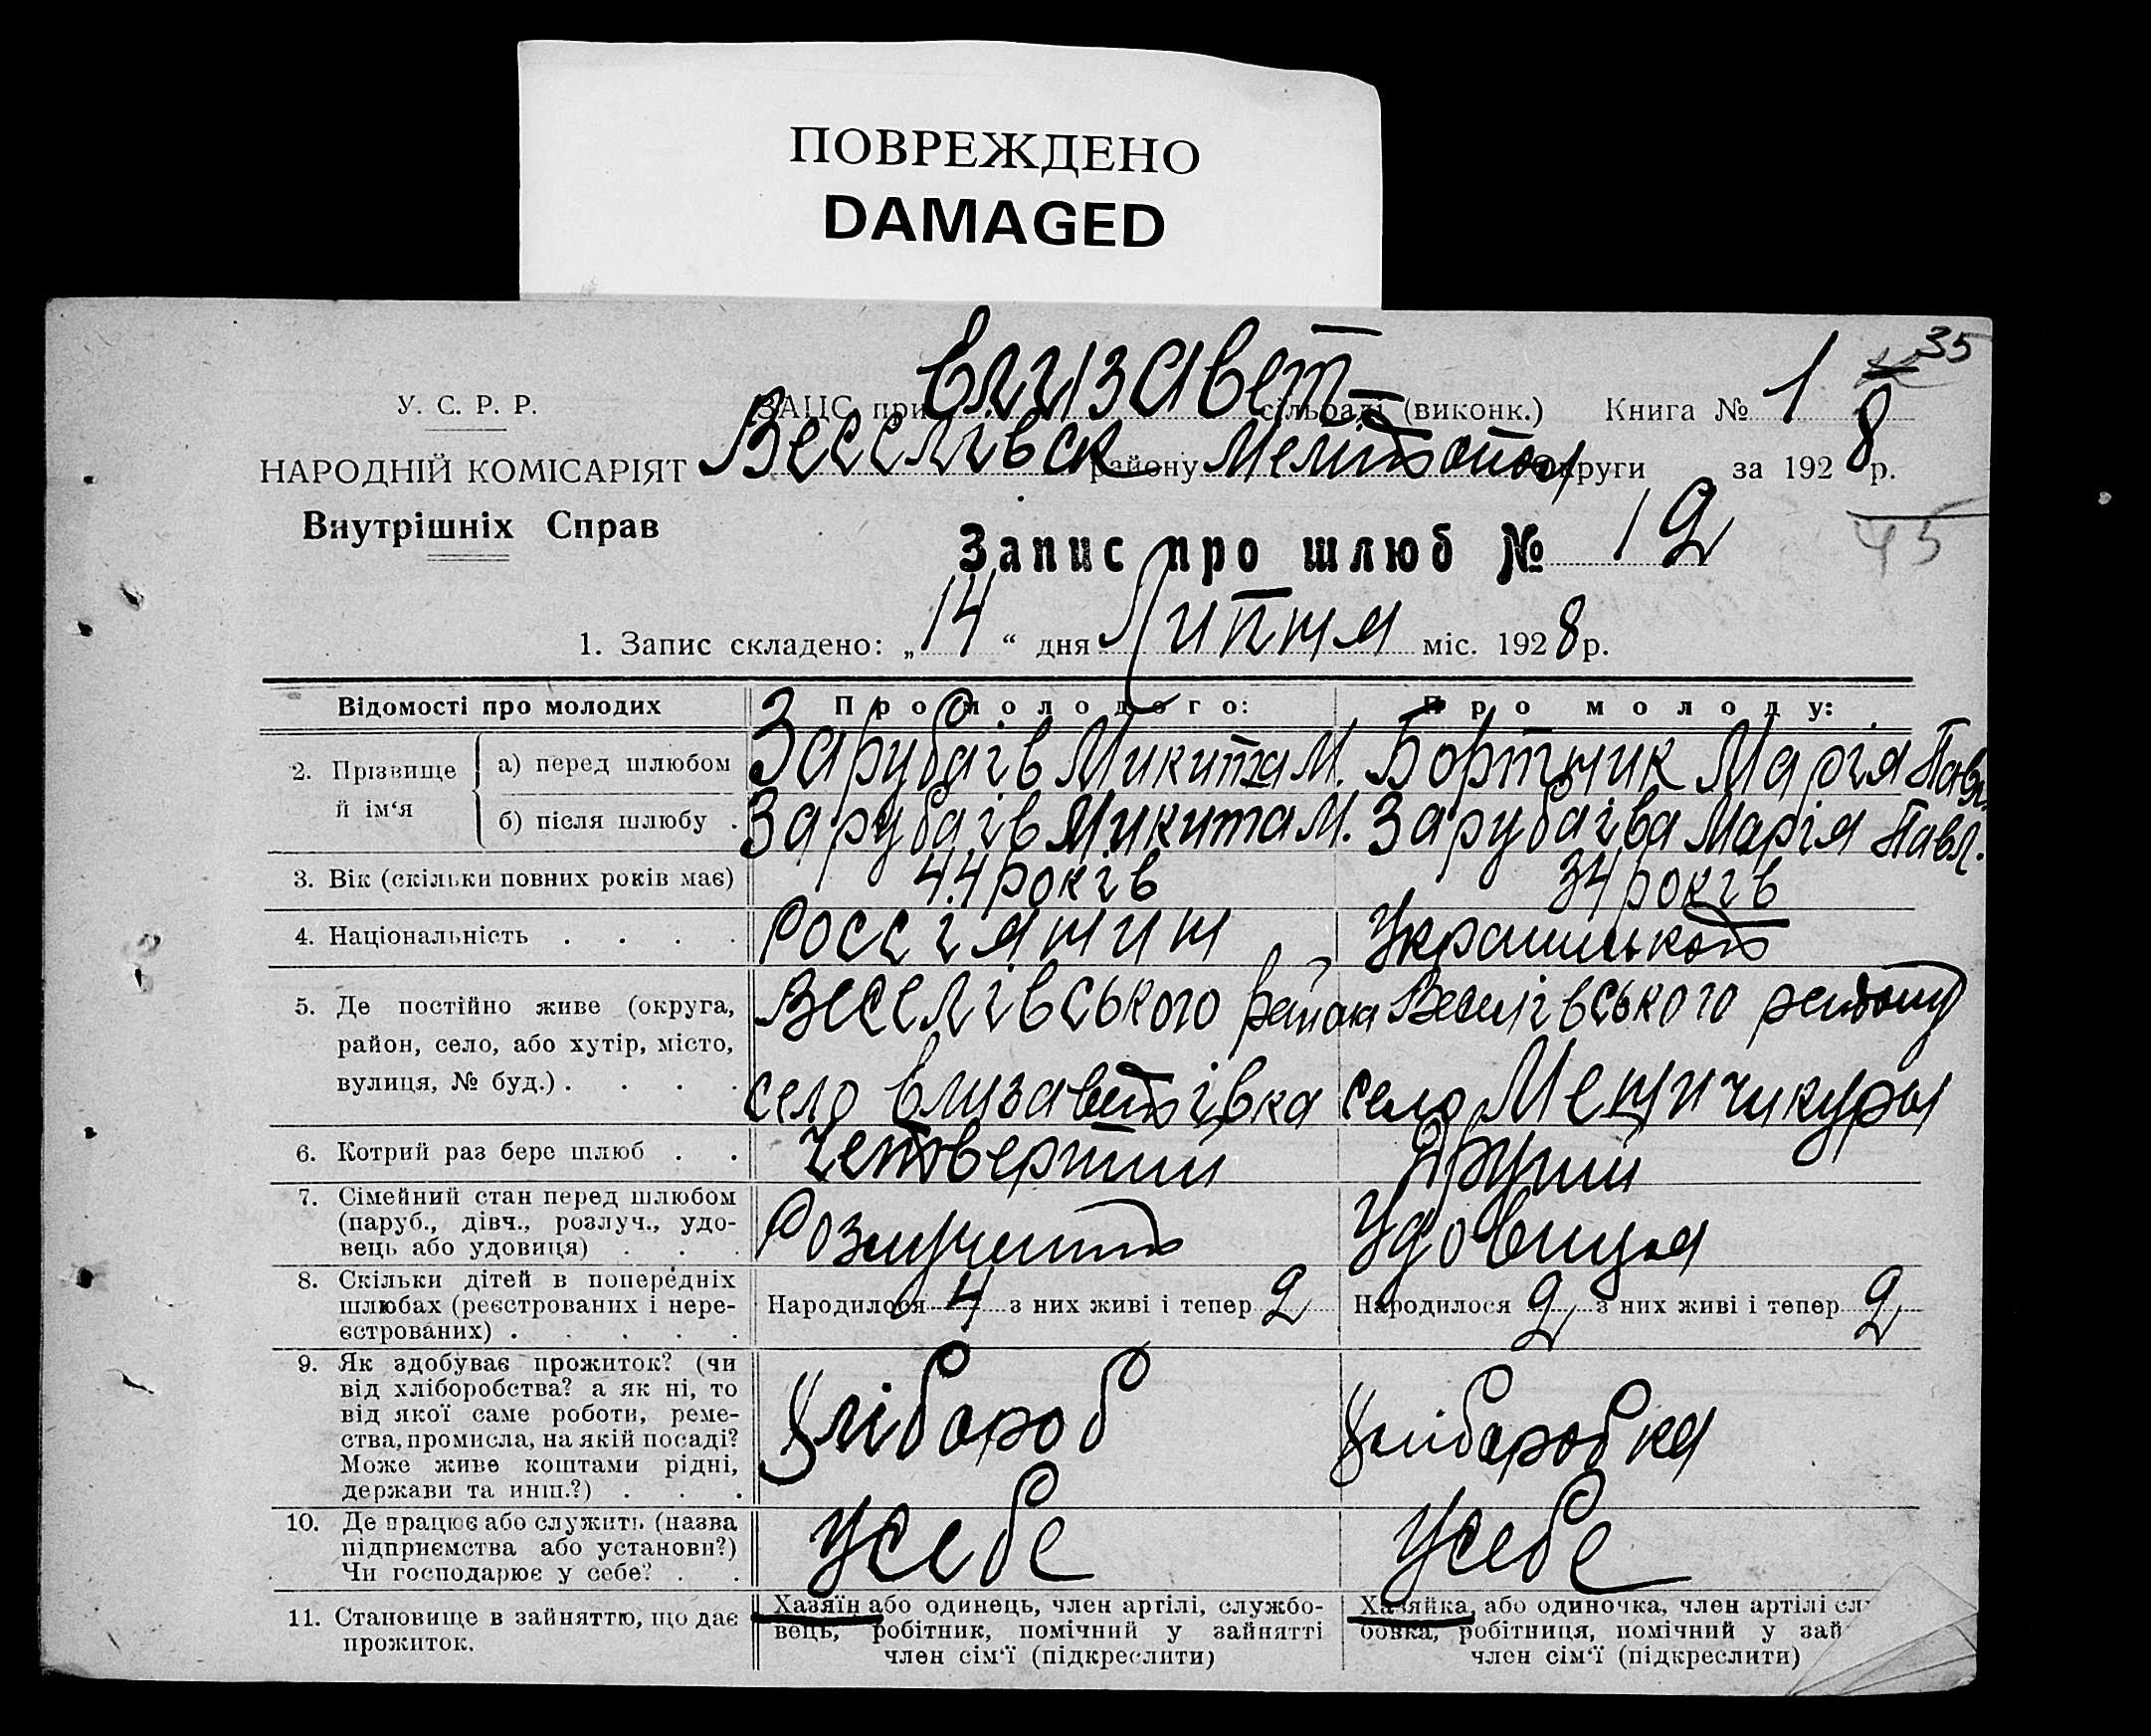 ПОВРЕЖДЕНО
DAMAGED
35
У. С. Р. Р.
НАРОДНІЙ КОМІСАРІЯТ
Внутрішніх Справ
ЗАЦС при Єлизавет- сільраді (виконк.) Книга № 1
Веселівськ району Мелітопол округи за 1928 р.
45
Запис про шлюб № 12
1. Запис складено: „14“ дня Липня міс. 1928 р.
Відомості про молодих Про молодого: Про молоду:
2. Прізвище й ім‘я
а) перед шлюбом Зарубаів Микита М. Бортник Марія Павл.
б) після шлюбу . Зарубаів Микита М. Зарубаіва Марія Павл.
3. Вік (скільки повних років має) 44 років 34 років
4. Національність . . . . Россіянин
5. Де постійно живе (округа, Веселівського району Веселівського району
район, село, або хутір, місто,
вулиця, № буд.) . . . . село Єлизаветівка село Менчикуры
6. Котрий раз бере шлюб . . Четвертий Другий
7. Сімейний стан перед шлюбом
(паруб., дівч., розлуч., удо-
вець або удовиця) . . . Удовиця
8. Скільки дітей в попередніх
шлюбах (реєстрованих і нере-
єстрованих) . . . . .
Народилося 4 з них живі і тепер 2 Народилося 2 з них живі і тепер 2
9. Як здобуває прожиток? (чи
від хліборобства? а як ні, то
від якої саме роботи, реме-
ства, промисла, на якій посаді?
Може живе коштами рідні,
держави та инш.?) . . .
Хлібороб Хлібаробка
10. Де працює або служить (назва
підприємства або установи?)
Чи господарює у себе? . .
У себе У себе
11. Становище в зайняттю, що дає
прожиток.
Хазяїн або одинець, член артілі, службо-
вець, робітник, помічний у зайнятті
член сім‘ї (підкреслити)
Хазяйка, або одиночка, член артілі сл
бовка, робітниця, помічний у зай
член сім‘ї (підкреслити)